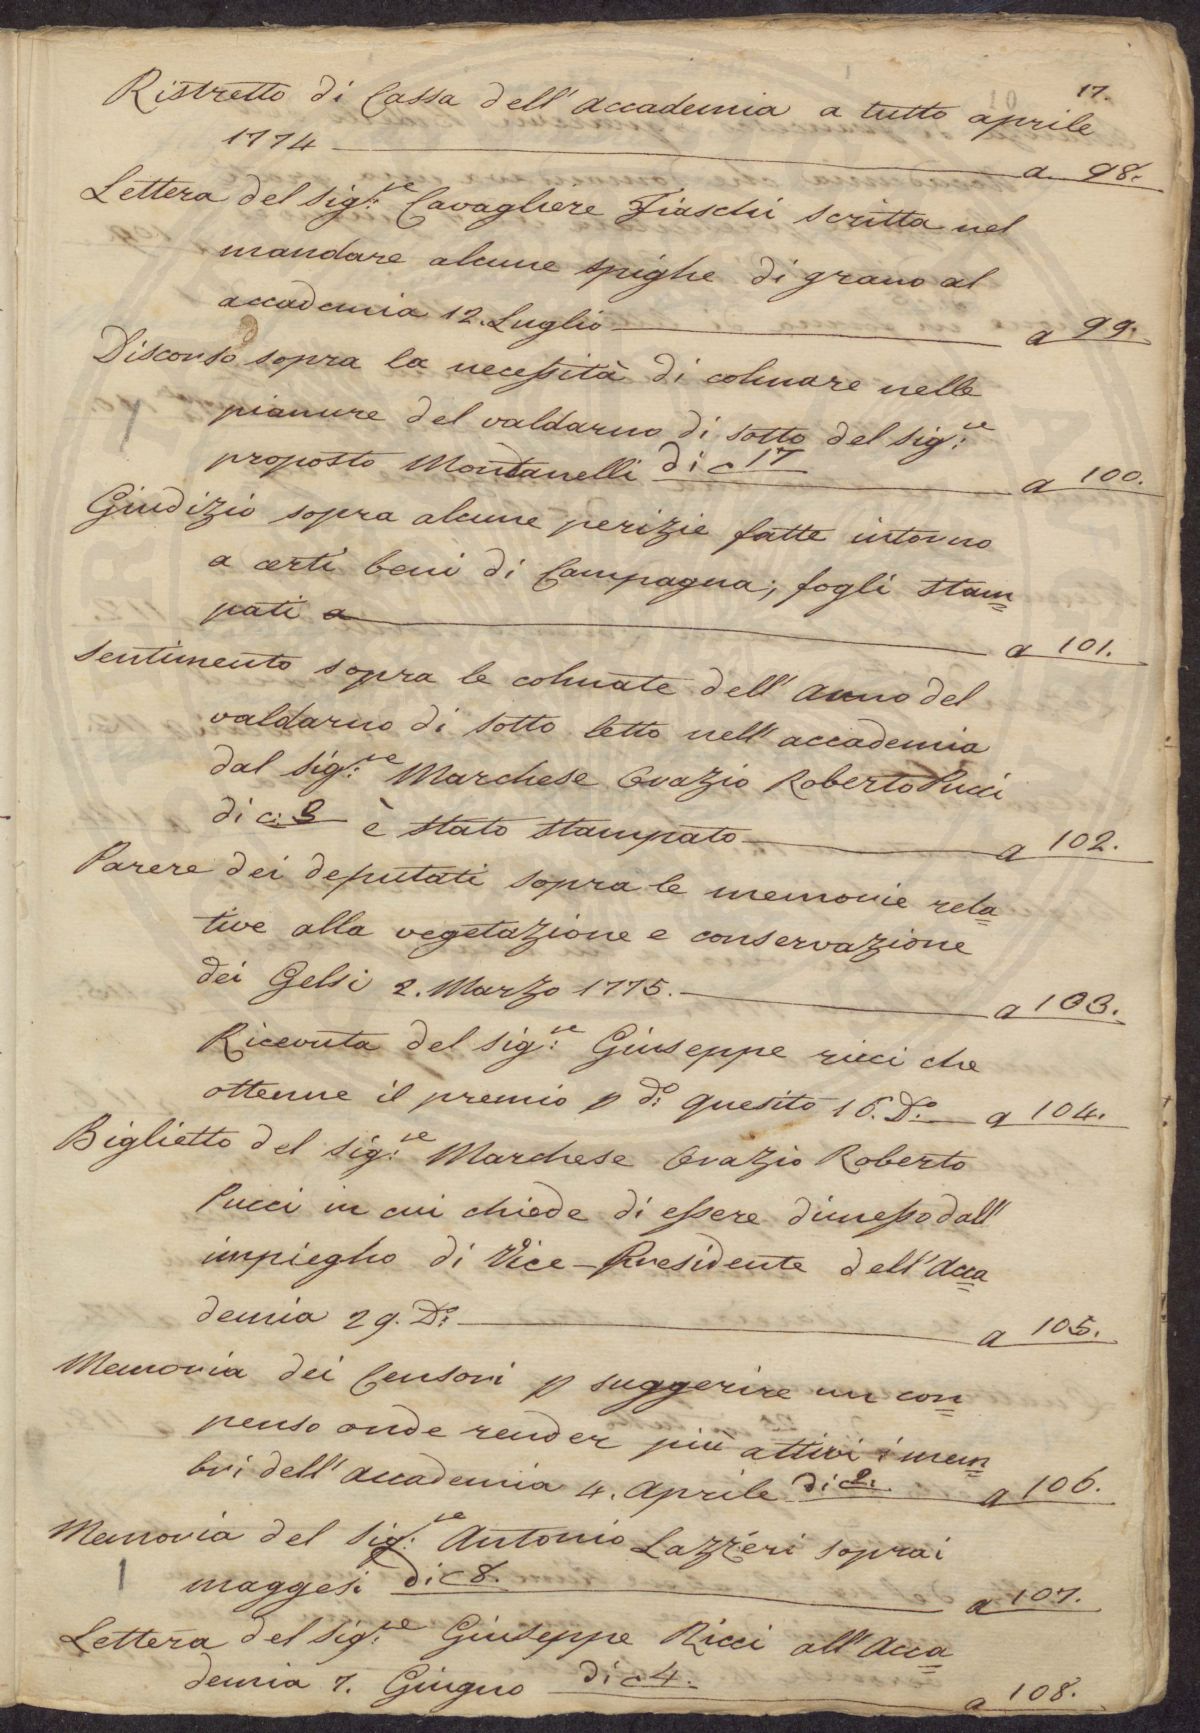 17.
10
Ristretto di Cassa dell' accademia a tutto aprile
1774 a 98.
Lettera del Sig.re Cavagliere Fiaschi scritta nel
mandare alcune spighe di grano al
accademia 12. Luglio a 99.
Discorso sopra la necessità di colmare nelle
pianure del valdarno di sotto del Sig.re
proposto Montanelli di c 17 a 100.
Giudizio sopra alcune perizie fatte intorno
a certi beni di Campagna; fogli stam=
pati a 101.
Sentimento sopra le colmate dell' Arno del
valdarno di sotto letto nell' accademia
dal Sig.re Marchese Orazio Roberto Pucci
di c: 3 è stato stampato a 102.
Parere dei deputati sopra le memorie rela=
tive alla vegetazione e conservazione
dei Gelsi 2. Marzo 1775. a 103.
Ricevuta del Sig.re Giuseppe ricci che
ottenne il premio p d.o quesito 16. D.o a 104.
Biglietto del Sig.re Marchese Orazio Roberto
Pucci in cui chiede di essere dimesso dall'
impiegho di Vice-Presidente dell' Acca=
demia 29. D.o a 105.
Memoria dei Censori p suggerire un con=
penso onde render più attivi i mem=
bri dell' accademia 4. Aprile di c 2. a 106.
Memoria del Sig.re Antonio Lazzeri sopra i
maggesi di c 8. a 107.
Lettera del Sig.re Giuseppe Ricci all' Acca=
demia 7. Giugno di c 4. a 108.